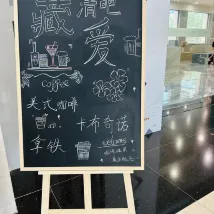 藏 清吧
爱
Coffee
美式咖啡
卡布奇诺
拿铁